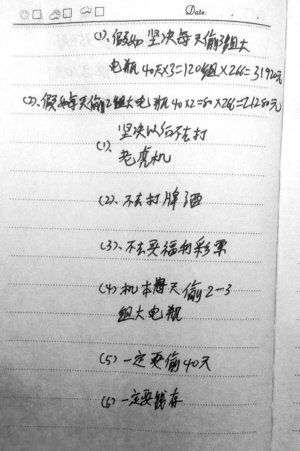 Date.
(1)、假如坚决每天偷3组大
电瓶40天×3=120组×266=31920元
(2)、假如每天偷2组大电瓶40×2=80×266=21280元
(1)、坚决以后不去打
老虎机
(2)、不去打牌酒
(3)、不去买福利彩票
(4)机本每天偷2-3
组大电瓶
(5)一定要偷40天
(6)一定要钱存